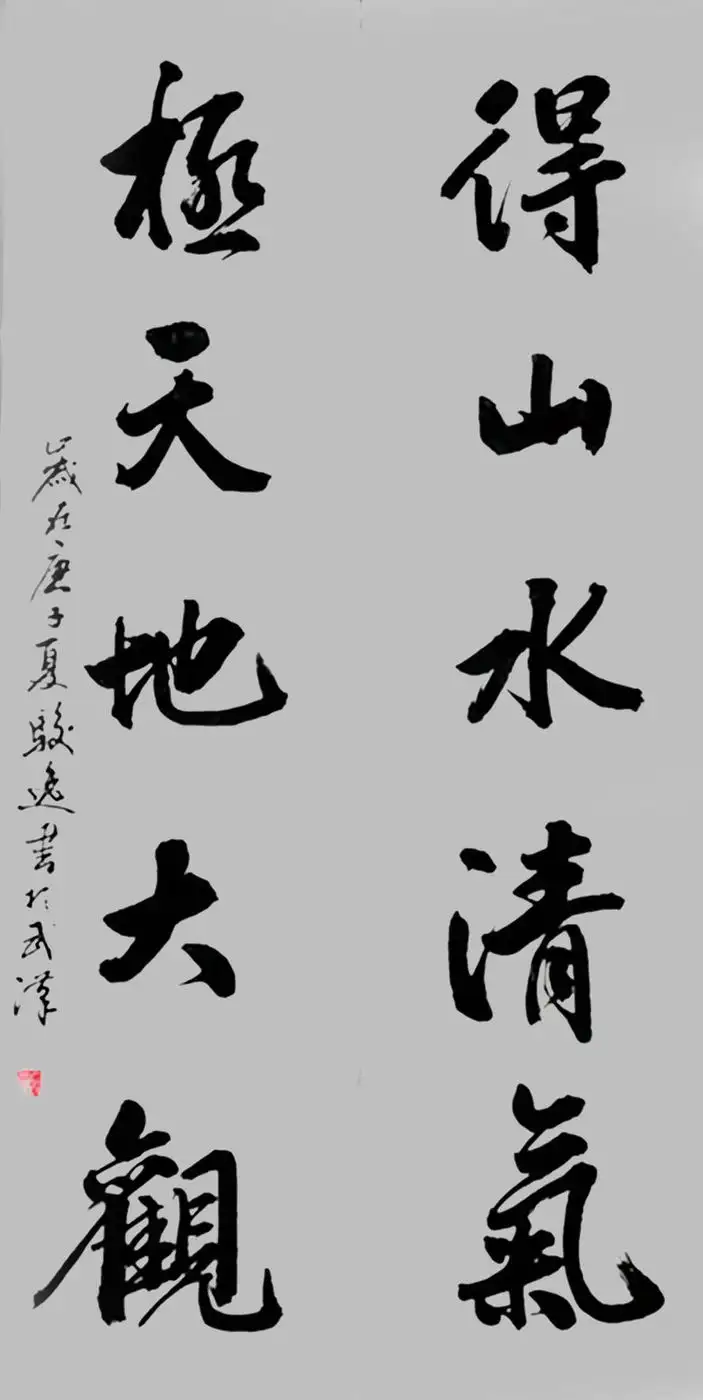 得山水清氣
極天地大觀
歲在庚子夏駿逸書於武漢